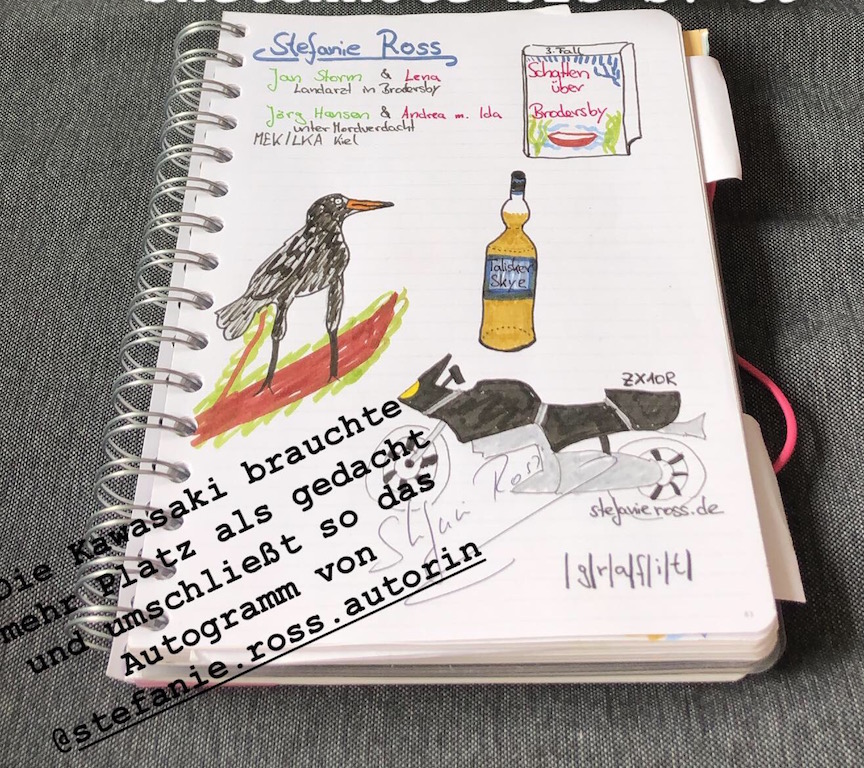 Stefanie Ross
Jan Storm & Lena
Landarzt in Brodersby
Jörg Hansen & Andrea m. Ida
unter Mordverdacht
MEK/LKA Kiel
3. Fall
Schatten
über
Brodersby
Talisker
Skye
ZX10R
Stefanie Ross
stefanieross.de
|g|r|a|f|i|t|
93
Die Kawasaki brauchte
mehr Platz als gedacht
und umschließt so das
Autogramm von
@stefanie.ross.autorin